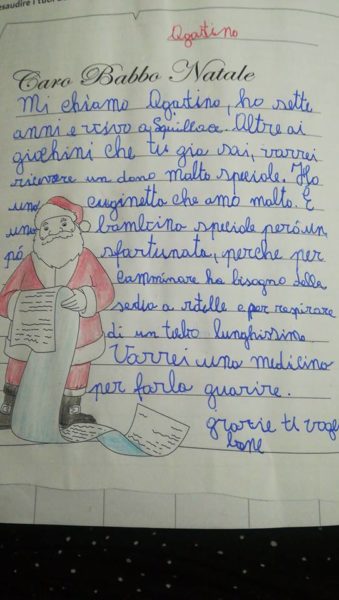 esaudire i tuoi
Agatino
Caro Babbo Natale
Mi chiamo Agatino, ho sette
anni e vivo a Squillace. Altre ai
giochini che tu gia sai, varrei
ricevere un dono molto speciale. Ho
una cuginetta che amo molto. E
una bambina speciale peró un
pó sfortunata, perche per
camminare ha bisogno della
sedia a rotelle e par respirare
di un tubo lunghissimo
Varrei una medicina
per farla guarire.
grazie ti voglio
bene